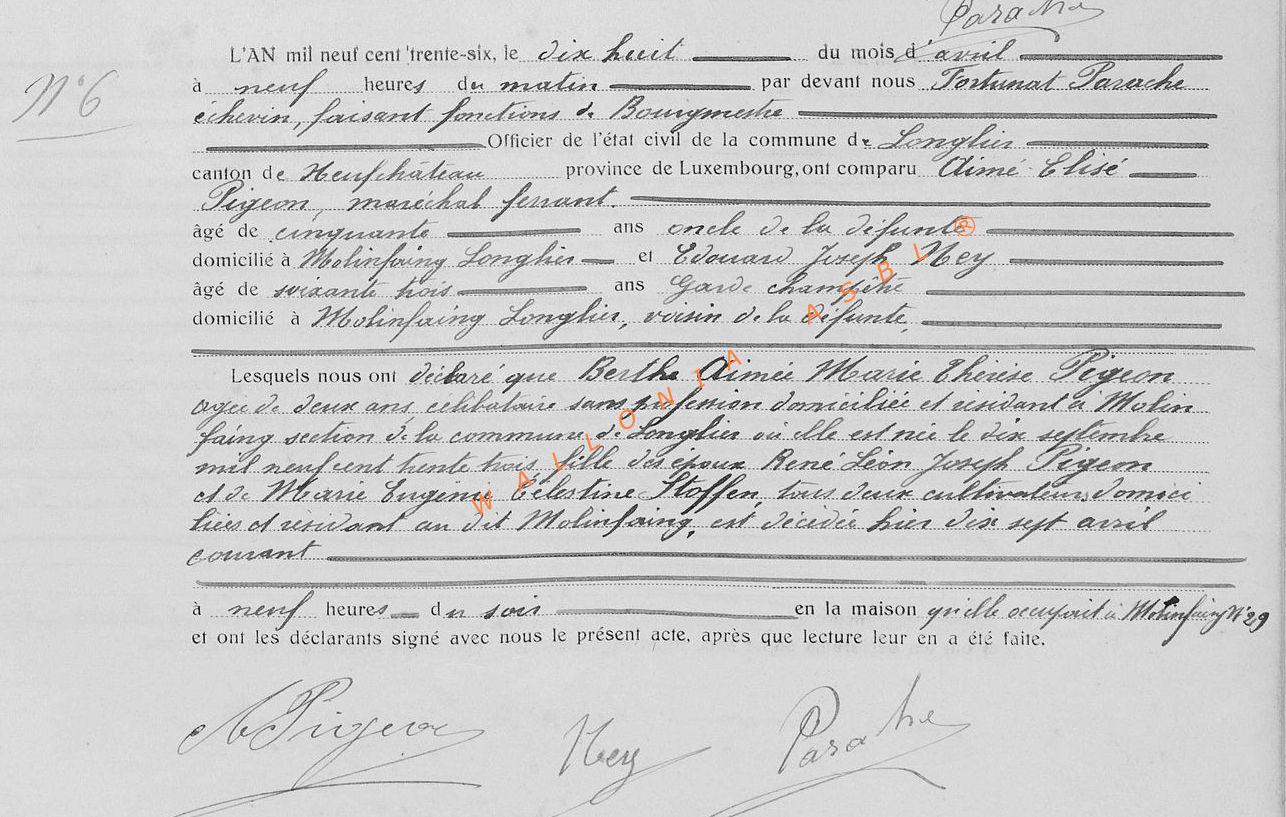 Parache
N° 6
L'AN mil neuf cent trente-six, le dix huit du mois d'avril
à neuf heures du matin par devant nous Fortunat Parache
échevin, faisant fonctions de Bourgmestre
Officier de l'état civil de la commune de Longlier
canton de Neufchâteau province de Luxembourg, ont comparu Aimé Elisé
Pigeon, maréchal ferrant.
âgé de cinquante ans oncle de la défunte
domicilié à Molinfaing Longlier et Edouard Joseph Ney
âgé de soixante trois ans Garde champêtre
domicilié à Molinfaing Longlier, voisin de la défunte,
Lesquels nous ont déclaré que Berthe Aimée Marie Thérèse Pigeon
agée de deux ans, célibataire sans profession domiciliée et résidant à Molin
faing section de la commune de Longlier où elle est née le dix septembre
mil neuf cent trente trois, fille des époux René Léon Joseph Pigeon
et de Marie Eugénie Célestine Stoffen, tous deux cultivateurs, domici
liés et résidant au dit Molinfaing, est décédée hier dix sept avril
courant
à neuf heures du soir en la maison qu'elle occupait à Molinfaing N° 29
et ont les déclarants signé avec nous le présent acte, après que lecture leur en a été faite.
A Pigeon Ney Parache
WALLONIA ASBL ®